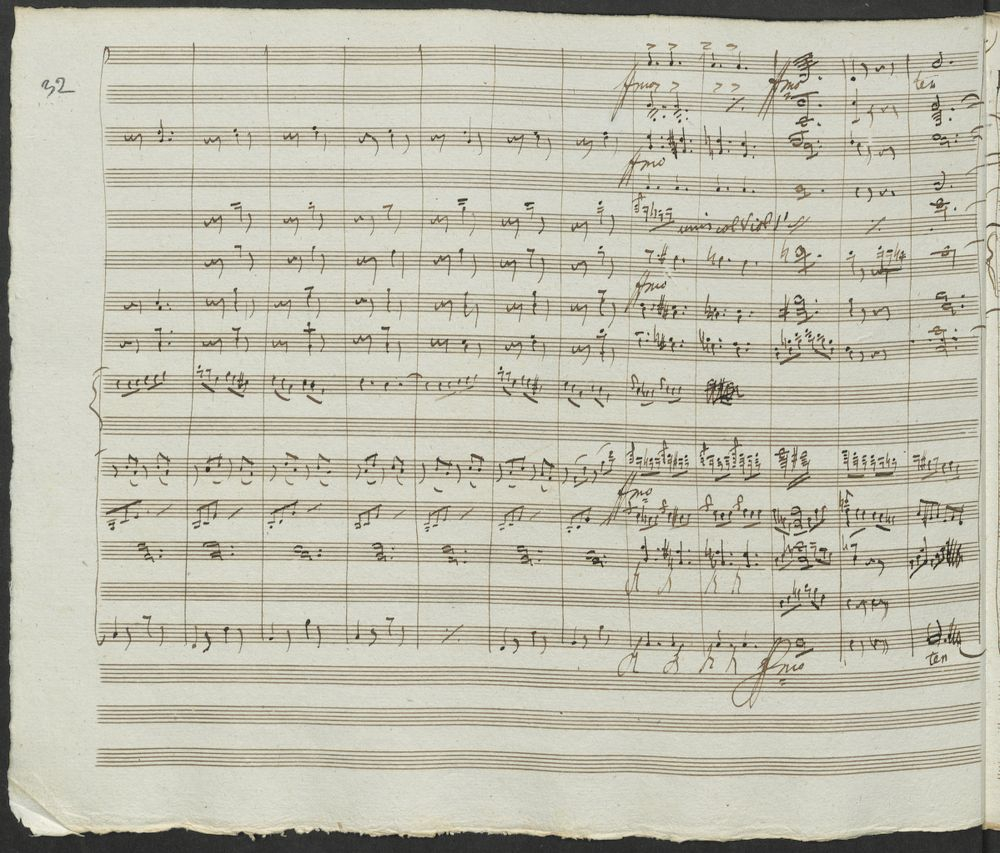 32
ffmo
ffmo
ten
ffmo
unis col Viol 1º
ffmo
ffmo
ffmo
ten